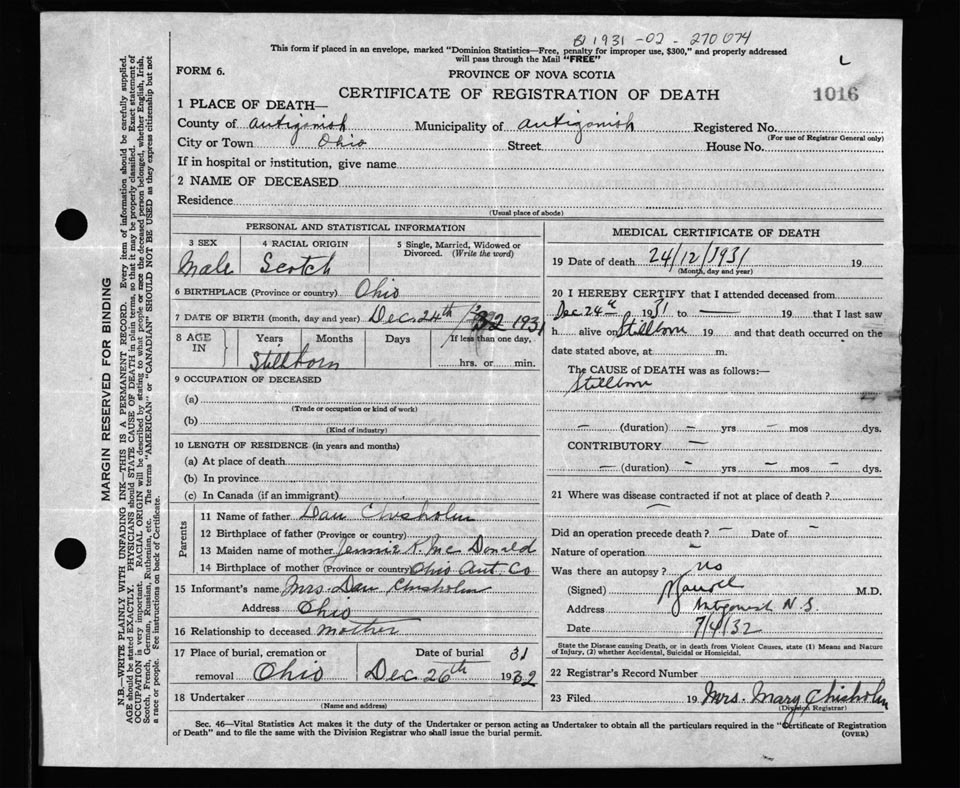 B 1931-02-270074
This form if placed in an envelope, marked "Dominion Statistics—Free, penalty for improper use, $300," and properly addressed
will pass through the Mail "FREE"
FORM 6.
PROVINCE OF NOVA SCOTIA
CERTIFICATE OF REGISTRATION OF DEATH
1016
1 PLACE OF DEATH—
County of Antigonish Municipality of Antigonish Registered No.
(For use of Registrar General only)
City or Town Ohio Street House No.
If in hospital or institution, give name
2 NAME OF DECEASED
Residence
(Usual place of abode)
PERSONAL AND STATISTICAL INFORMATION
3 SEX 4 RACIAL ORIGIN 5 Single, Married, Widowed or Divorced. (Write the word)
Male Scotch
6 BIRTHPLACE (Province or country) Ohio
7 DATE OF BIRTH (month, day and year) Dec. 24th 1932 1931
8 AGE IN Years Months Days If less than one day,
Stillborn hrs. or min.
9 OCCUPATION OF DECEASED
(a)
(Trade or occupation or kind of work)
(b)
(Kind of industry)
10 LENGTH OF RESIDENCE (in years and months)
(a) At place of death
(b) In Province
(c) In Canada (if an immigrant)
Parents
11 Name of father Dan Chisholm
12 Birthplace of father (Province or country)
13 Maiden name of mother Jennie K. Mc Donald
14 Birthplace of mother (Province or country) Ohio Ant. Co
15 Informant's name Mrs. Dan Chisholm
Address Ohio
16 Relationship to deceased Mother
17 Place of burial, cremation or removal Ohio Date of burial Dec 26th 31 1932
18 Undertaker
(Name and address)
MEDICAL CERTIFICATE OF DEATH
19 Date of death 24/12/1931 19
(Month, day and year)
20 I HEREBY CERTIFY that I attended deceased from
Dec 24th 1931 to — 19 that I last saw
h alive on Stillborn 19 and that death occurred on the
date stated above, at m.
The CAUSE of DEATH was as follows:—
Stillborn
— (duration) — yrs — mos — dys.
CONTRIBUTORY —
— (duration) — yrs — mos — dys.
21 Where was disease contracted if not at place of death?
—
Did an operation precede death? — Date of —
Nature of operation —
Was there an autopsy? No
(Signed) M.D.
Address Antigonish N.S.
Date 7/4/32
State the Disease causing Death, or in death from Violent Causes, state (1) Means and Nature
of Injury, (2) whether Accidental, Suicidal or Homicidal.
22 Registrar's Record Number
23 Filed 19 Mrs. Mary Chisholm
(Division Registrar)
Sec. 46—Vital Statistics Act makes it the duty of the Undertaker or person acting as Undertaker to obtain all the particulars required in the "Certificate of Registration
of Death" and to file the same with the Division Registrar who shall issue the burial permit. (OVER)
MARGIN RESERVED FOR BINDING
N.B.—WRITE PLAINLY WITH UNFADING INK—THIS IS A PERMANENT RECORD. Every item of information should be carefully supplied.
AGE should be stated EXACTLY. PHYSICIANS should STATE CAUSE OF DEATH in plain terms, so that it may be properly classified. Exact statement of
OCCUPATION is very important. RACIAL ORIGIN will be described by stating to what people or race the deceased person belonged, whether English, Irish,
Scotch, French, German, Russian, Ruthenian, etc. The terms "AMERICAN" or "CANADIAN" SHOULD NOT BE USED as they express citizenship but not
a race or people. See instructions on back of Certificate.